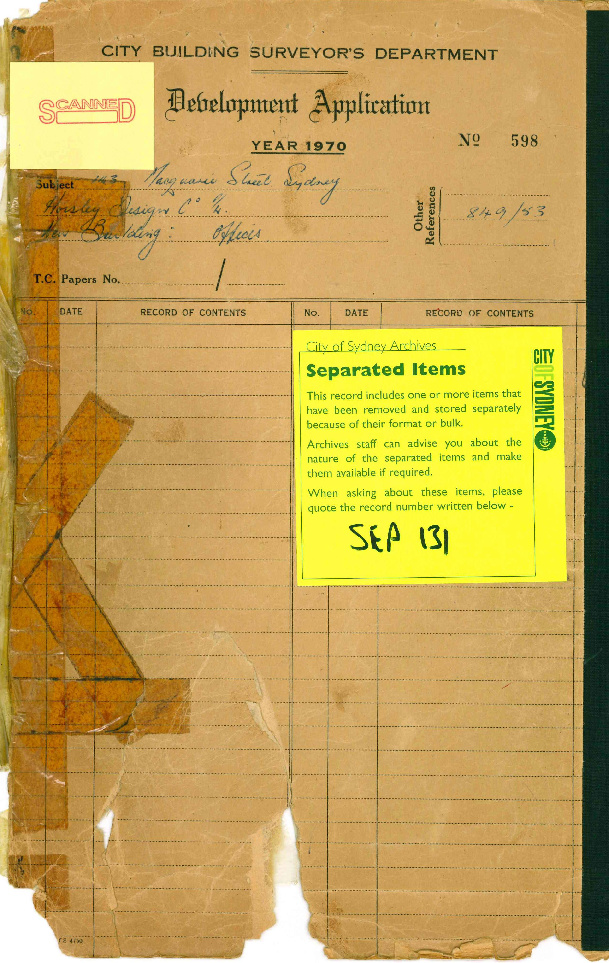 CITY BUILDING SURVEYOR'S DEPARTMENT
SCANNED
Development Application
YEAR 1970
Nº 598
Subject 143 Macquarie Street Sydney
Design Cº
New Building : Offices
Other References 849/53
T.C. Papers No. /
No. DATE RECORD OF CONTENTS No. DATE RECORD OF CONTENTS
City of Sydney Archives
Separated Items
This record includes one or more items that
have been removed and stored separately
because of their format or bulk.
Archives staff can advise you about the
nature of the separated items and make
them available if required.
When asking about these items, please
quote the record number written below -
SEP 131
CITY OF SYDNEY